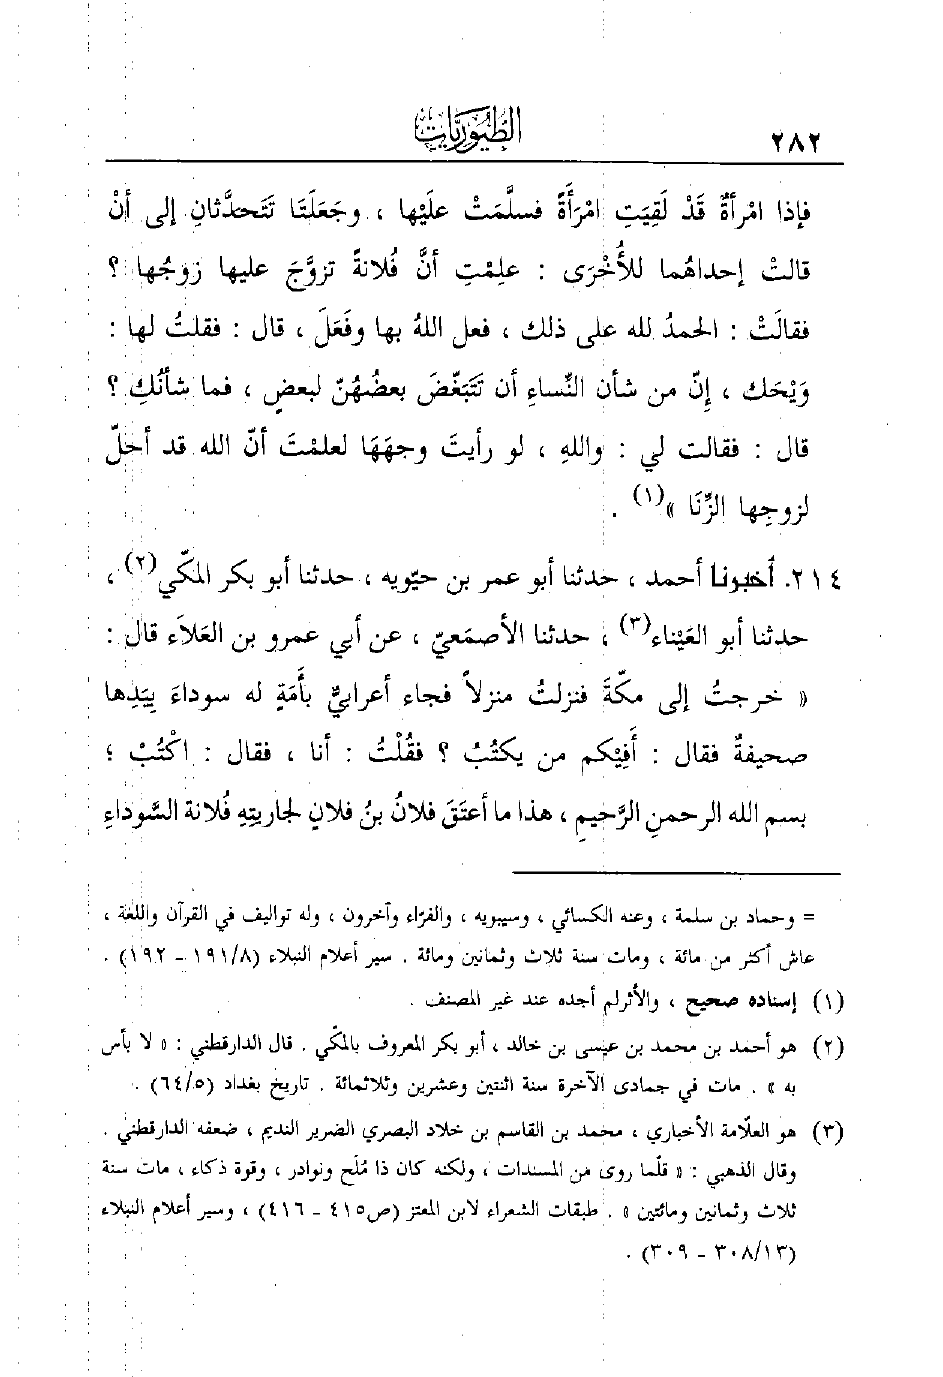 ٢٨٢
الطُّيُورِيَّات
فإذا امْرأةٌ قَدْ لَقِيَتِ امْرَأَةً فسلَّمَتْ علَيْها ، وجَعَلَتَا تَتَحدَّثانِ إلى أنْ
قالتْ إحداهُما للأُخْرَى : علِمْتِ أنَّ فُلانةً تزوَّجَ عليها زوجُها ؟
فقالَتْ : الحمدُ لله على ذلك ، فعل اللهُ بها وفَعَلَ ، قال : فقلتُ لها :
وَيْحَك ، إنّ من شأن النِّساءِ أن تَتَبَغّضَ بعضُهُنّ لبعضٍ ، فما شأنُكِ ؟
قال : فقالت لي : واللهِ ، لو رأيتَ وجهَهَا لعلمْتَ أنّ الله قد أحَلّ
لزوجِها الزِّنَا »(١) .
٢١٤. أخبرنا أحمد ، حدثنا أبو عمر بن حيّويه ، حدثنا أبو بكر المكّي(٢) ،
حدثنا أبو العَيْناء(٣) ، حدثنا الأصمَعيّ ، عن أبي عمرو بن العَلاَء قال :
« خرجتُ إلى مكّةَ فنزلتُ منزلاً فجاء أعرابيٌّ بأَمَةٍ له سوداءَ بِيَدِها
صحيفةٌ فقال : أَفِيْكم من يكتُبُ ؟ فقُلْتُ : أنا ، فقال : اكْتُبْ ؛
بسم الله الرحمنِ الرَّحيمِ ، هذا ما أعتَقَ فلانُ بنُ فلانٍ لجاريتِهِ فُلانة السَّوداءِ
= وحماد بن سلمة ، وعنه الكسائي ، وسيبويه ، والفرّاء وآخرون ، وله تواليف في القرآن واللغة ،
عاش أكثر من مائة ، ومات سنة ثلاث وثمانين ومائة . سير أعلام النبلاء (١٩١/٨ - ١٩٢) .
(١) إسناده صحيح ، والأثرلم أجده عند غير المصنف .
(٢) هو أحمد بن محمد بن عيسى بن خالد ، أبو بكر المعروف بالمكّي . قال الدارقطني : « لا بأس
به » . مات في جمادى الآخرة سنة اثنتين وعشرين وثلاثمائة . تاريخ بغداد (٦٤/٥) .
(٣) هو العلاّمة الأخباري ، محمد بن القاسم بن خلاد البصري الضرير النديم ، ضعفه الدارقطني .
وقال الذهبي : « قلّما روى من المسندات ، ولكنه كان ذا مُلَح ونوادر ، وقوة ذكاء ، مات سنة
ثلاث وثمانين ومائتين » . طبقات الشعراء لابن المعتز (ص٤١٥ - ٤١٦) ، وسير أعلام النبلاء
(٣٠٨/١٣ - ٣٠٩) .